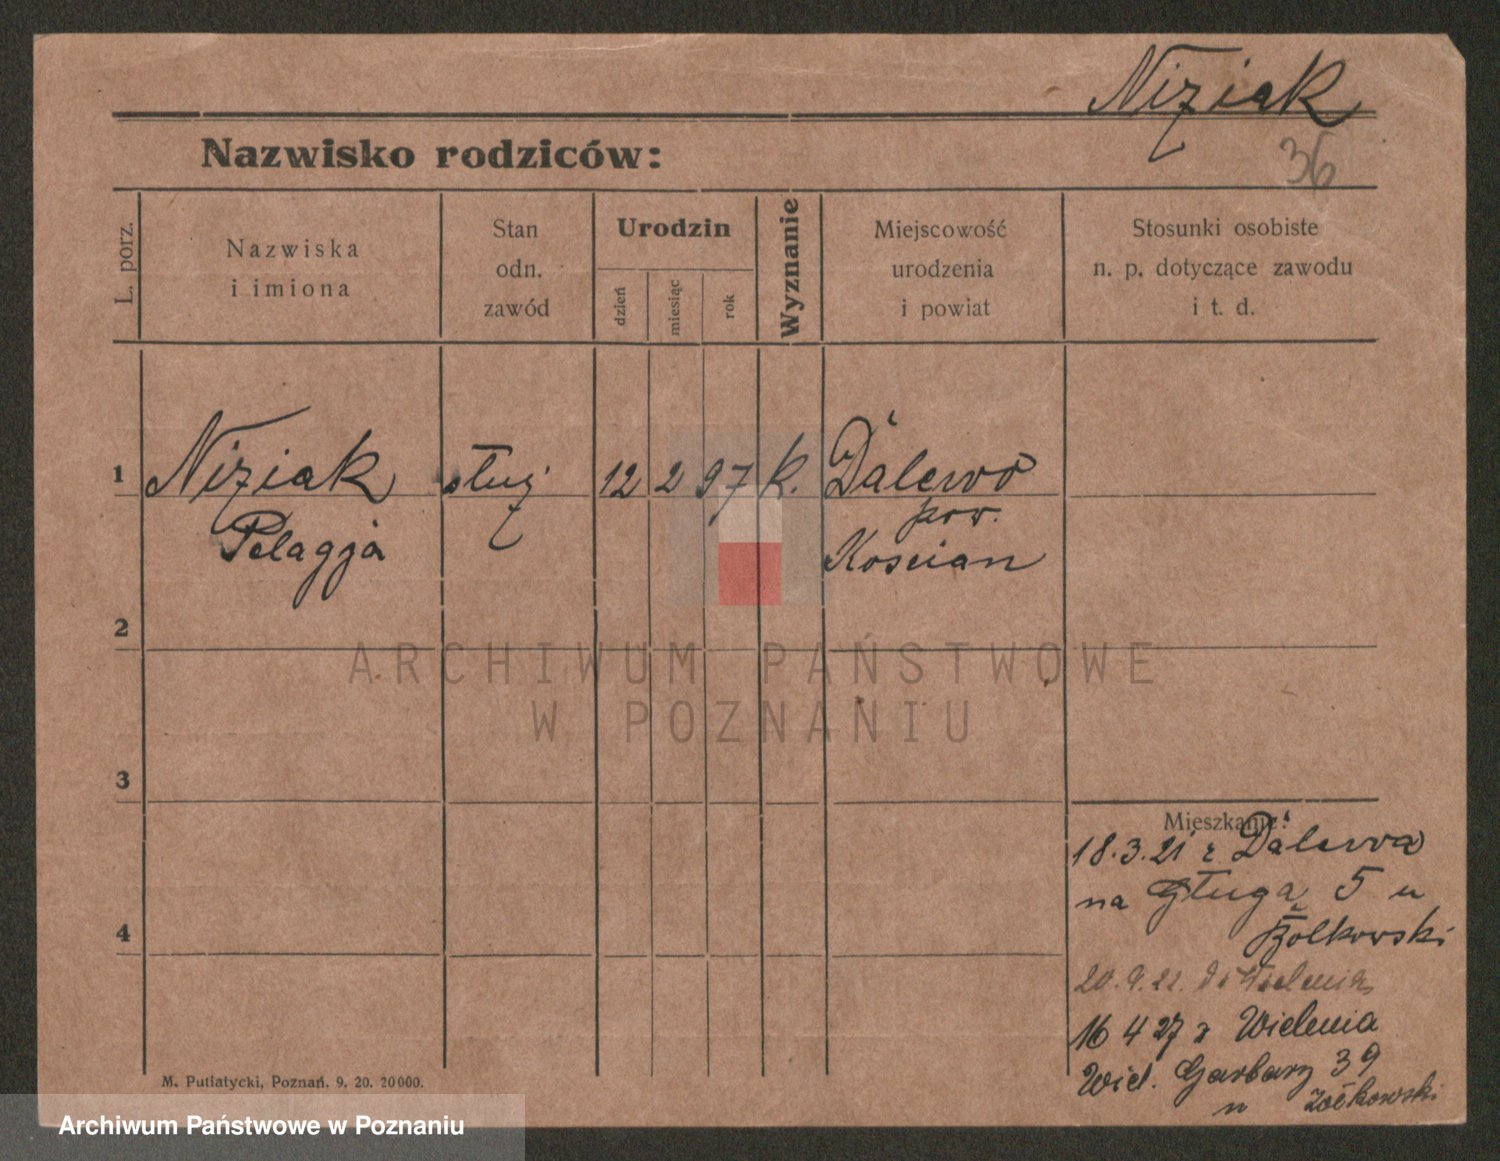 Niziak
36
Nazwisko rodziców:
L. porz.
Nazwiska
i imiona
Stan
odn.
zawód
Urodzin
dzień
miesiąc
rok
Wyznanie
Miejscowość
urodzenia
i powiat
Stosunki osobiste
n. p. dotyczące zawodu
i t. d.
1 Niziak służ 12 2 97 k. Dalewo
pow.
Pelagja Koscian
2
ARCHIWUM PAŃSTWOWE
W POZNANIU
3
Mieszkanie:
18.3.21 z Dalewa
na 5 u
4
Żolkowski
20.9.22. do Wielenia
16 4 27 z Wielenia
Wiel. Garbary 39
u Żołkowski
M. Putiatycki, Poznań. 9. 20. 20000.
Archiwum Państwowe w Poznaniu